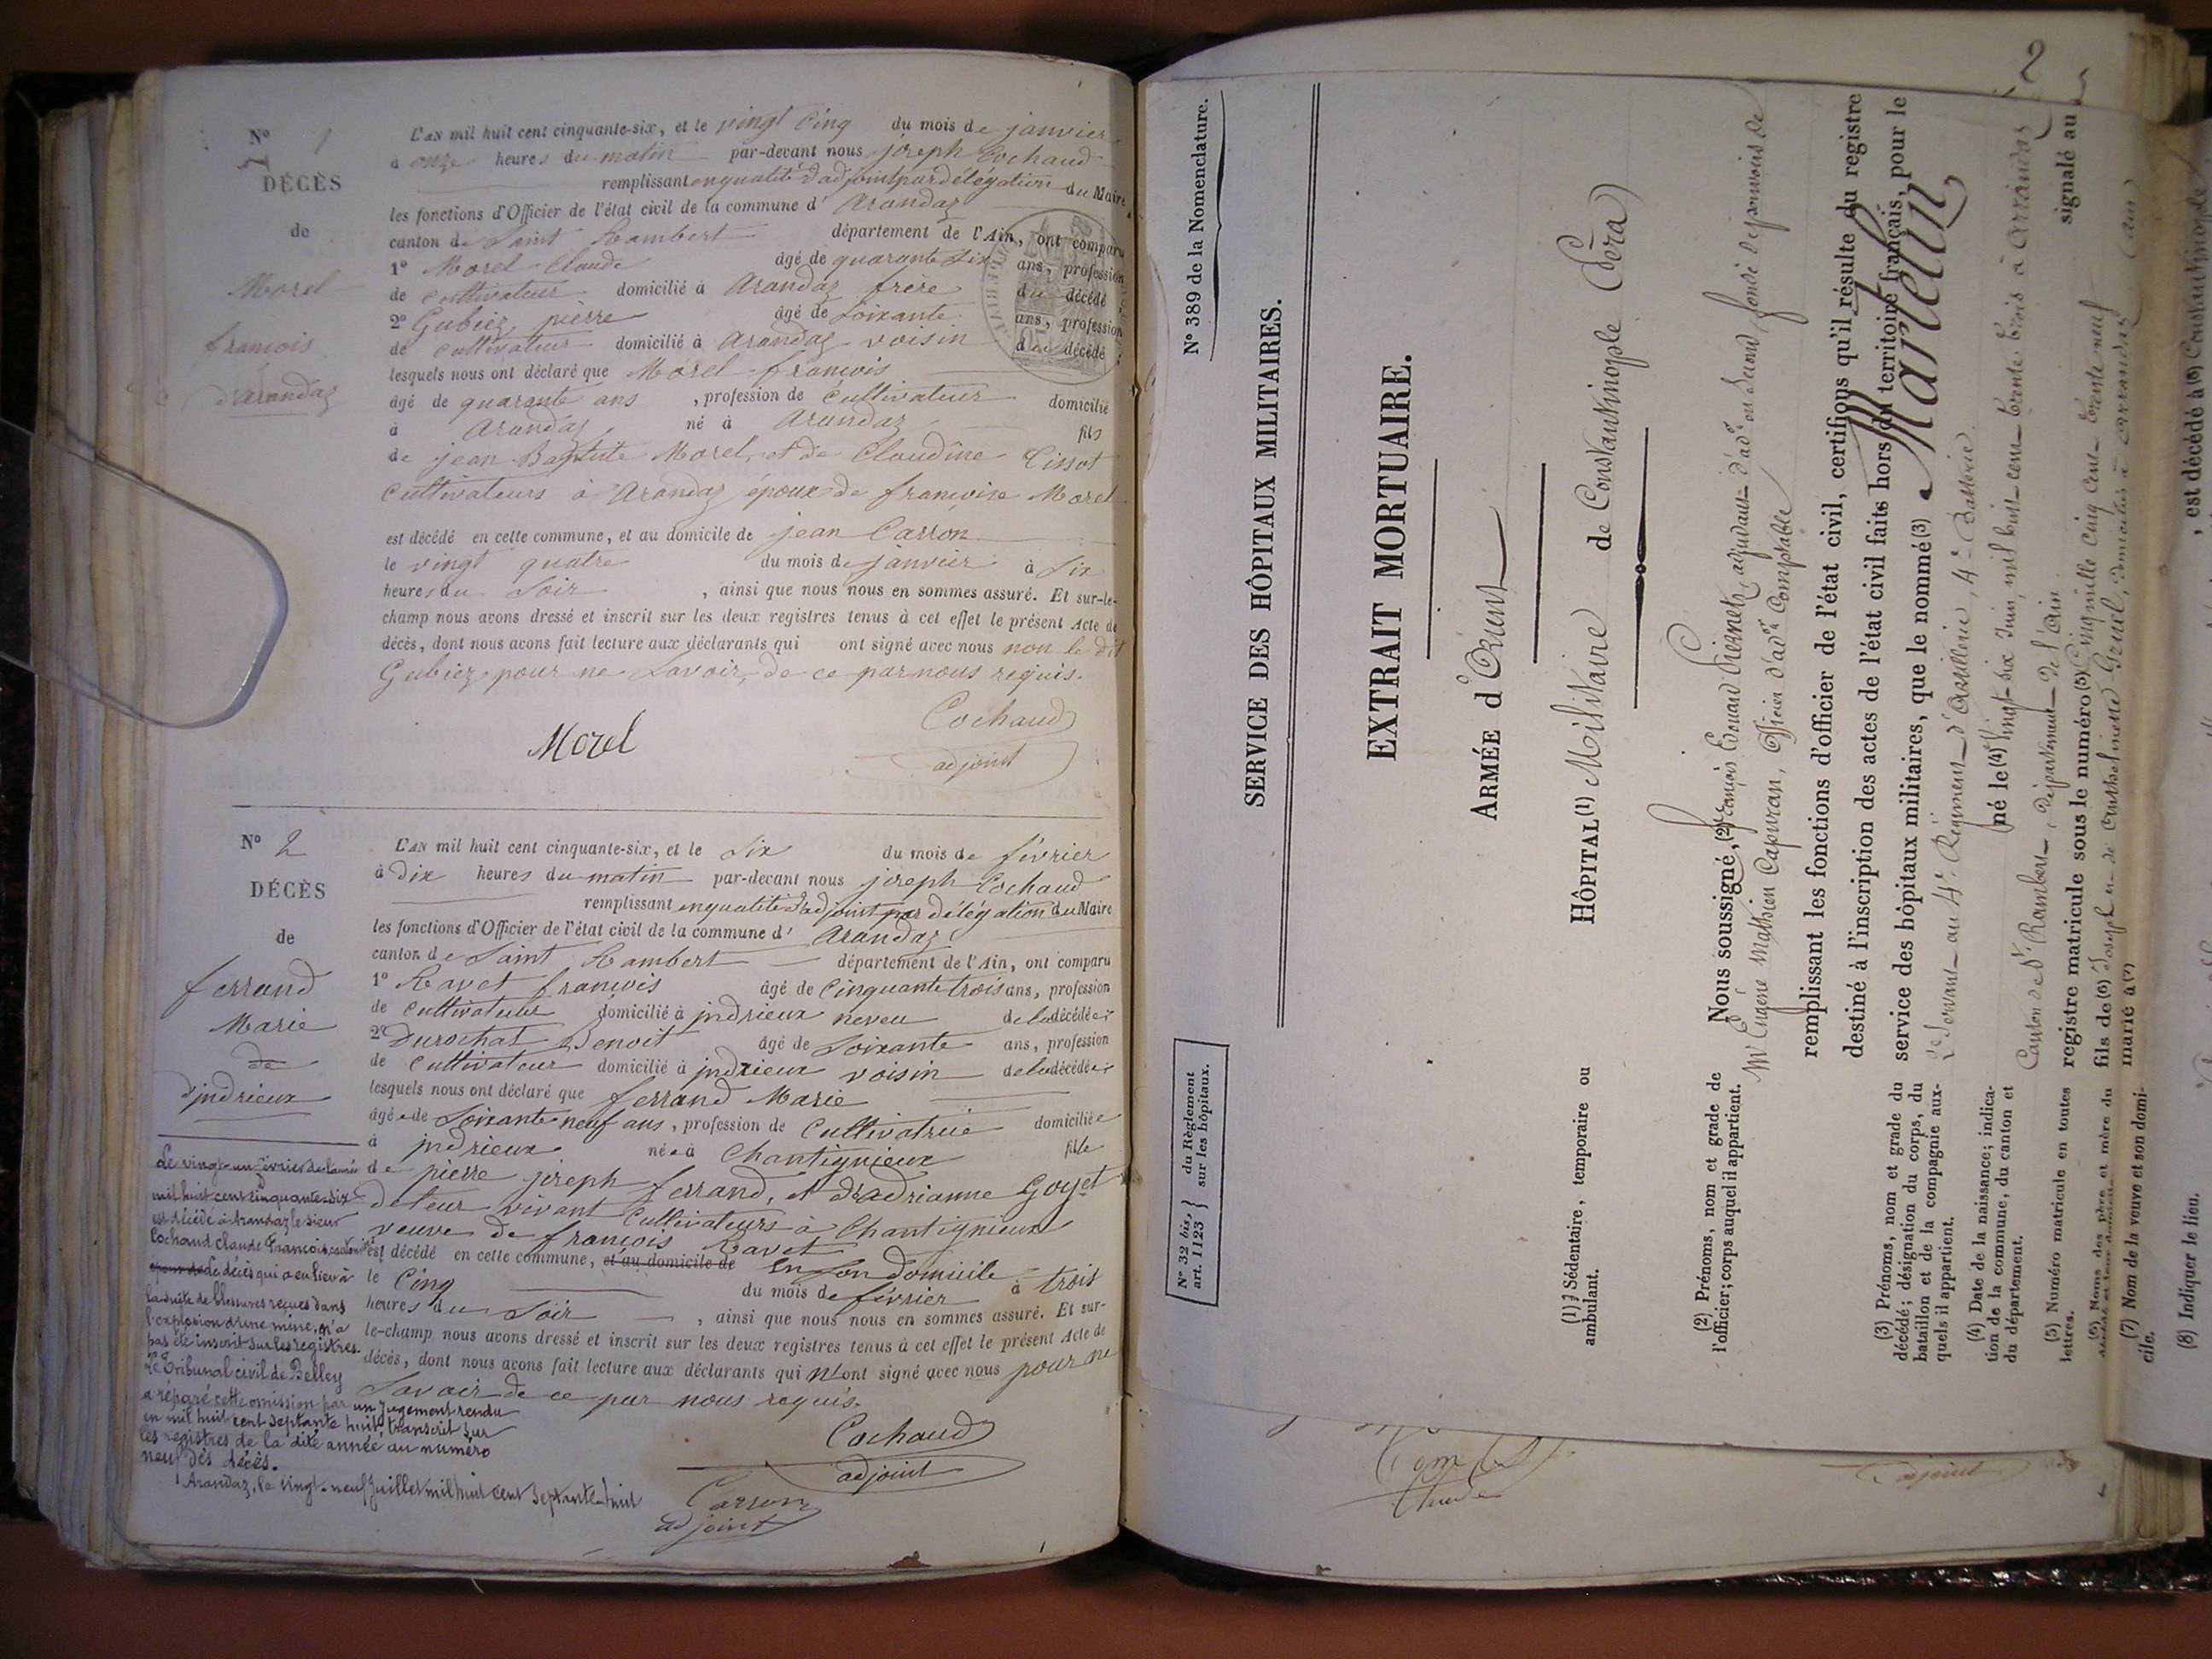 N° 1
DÉCÈS
de
Morel
francois
d'arandaz
L'AN mil huit cent cinquante-six, et le vingt cinq du mois de janvier
à onze heures du matin par-devant nous joseph Cochaud
remplissant en qualité d'adjoint par délégation du Maire
les fonctions d'Officier de l'état civil de la commune d' arandaz
canton de Saint Rambert département de l'Ain, ont comparu
1° Morel Claude âgé de quarante six ans, profession
de cultivateur domicilié à arandaz frère du décédé
2° Gubiez pierre âgé de soixante ans, profession
de cultivateur domicilié à arandaz voisin du décédé
lesquels nous ont déclaré que Morel francois
âgé de quarante ans , profession de Cultivateur domicilié
à arandaz, né à arandaz fils
de jean Baptiste Morel, et de Claudine Tissot
Cultivateurs à arandaz époux de francoise Morel
est décédé en cette commune, et au domicile de jean Carron
le vingt quatre du mois de janvier à six
heures du soir , ainsi que nous nous en sommes assuré. Et sur-le-
champ nous avons dressé et inscrit sur les deux registres tenus à cet effet le présent Acte de
décès, dont nous avons fait lecture aux déclarants qui ont signé avec nous non le dit
Gubiez pour ne savoir, de ce par nous requis.
Morel
Cochaud
adjoint
N° 2
DÉCÈS
de
ferrand
Marie
de
d'jndrieux
L'AN mil huit cent cinquante-six, et le six du mois de février
à dix heures du matin par-devant nous joseph Cochaud
remplissant en qualité d'adjoint par délégation du Maire
les fonctions d'Officier de l'état civil de la commune d' arandaz
canton de Saint Rambert département de l'Ain, ont comparu
1° Ravet francois âgé de cinquante trois ans, profession
de cultivateur domicilié à jndrieux neveu de la décédée
2° Durochat Benoit âgé de soixante ans, profession
de cultivateur domicilié à jndrieux voisin de la décédée
lesquels nous ont déclaré que ferrand Marie
âgée de soixante neuf ans, profession de Cultivatrice domiciliée
à jndrieux née à Chantignieux fille
de pierre joseph ferrand, et d'adrianne Goyet
de leur vivant Cultivateurs à Chantignieux
veuve de francois Ravet
est décédé en cette commune, et au domicile de en son domicile
le cinq du mois de février à trois
heures du soir , ainsi que nous nous en sommes assuré. Et sur-
le-champ nous avons dressé et inscrit sur les deux registres tenus à cet effet le présent Acte de
décès, dont nous avons fait lecture aux déclarants qui n'ont signé avec nous pour ne
savoir de ce par nous requis.
Cochaud
adjoint
Le vingt-un février de l'année
mil huit cent cinquante-six
est décédé à Arandaz le sieur
Cochaud Claude François,
de décès qui a eu lieu à
la suite de blessures reçues dans
l'explosion d'une mine, n'a
pas été inscrit sur les registres.
Le Tribunal civil de Belley
a réparé cette omission par un jugement rendu
en mil huit cent septante huit, transcrit sur
les registres de la dite année au numéro
neuf des décès.
Arandaz, le vingt-neuf juillet mil huit cent septante-huit
Carron
adjoint
2
N° 389 de la Nomenclature.
N° 32 bis, art. 1123 } du Règlement sur les hôpitaux.
SERVICE DES HÔPITAUX MILITAIRES.
EXTRAIT MORTUAIRE.
ARMÉE d'Orient
HÔPITAL (1) Militaire de Constantinople (Péra)
Nous soussigné, (2) François Edouard adjudant d'adon en second, fondé de pouvoirs de
Mr Eugène Mathieu Capuran, Officier d'adon Comptable
remplissant les fonctions d'officier de l'état civil, certifions qu'il résulte du registre
destiné à l'inscription des actes de l'état civil faits hors du territoire français, pour le
service des hôpitaux militaires, que le nommé (3) Martelin
2e Servant au 4e Régiment d'Artillerie, 4e Batterie
né le (4) vingt-six Juin, mil huit-cent-trente trois à Arrandas
Canton de St Rambert, département de l'Ain signalé au
registre matricule sous le numéro (5) Cinq mille cinq cent trente neuf
fils de (6) Joseph et de Gruel, domiciliés à Arrandas (Ain)
marié à (7)
, est décédé à (8) Constantinople
(1) Sédentaire, temporaire ou
ambulant.
(2) Prénoms, nom et grade de
l'officier; corps auquel il appartient.
(3) Prénoms, nom et grade du
décédé; désignation du corps, du
bataillon et de la compagnie aux-
quels il appartient.
(4) Date de la naissance; indica-
tion de la commune, du canton et
du département.
(5) Numéro matricule en toutes
lettres.
(6) Noms des père et mère du
décédé et leur domicile.
(7) Nom de la veuve et son domi-
cile.
(8) Indiquer le lieu.
adjoint